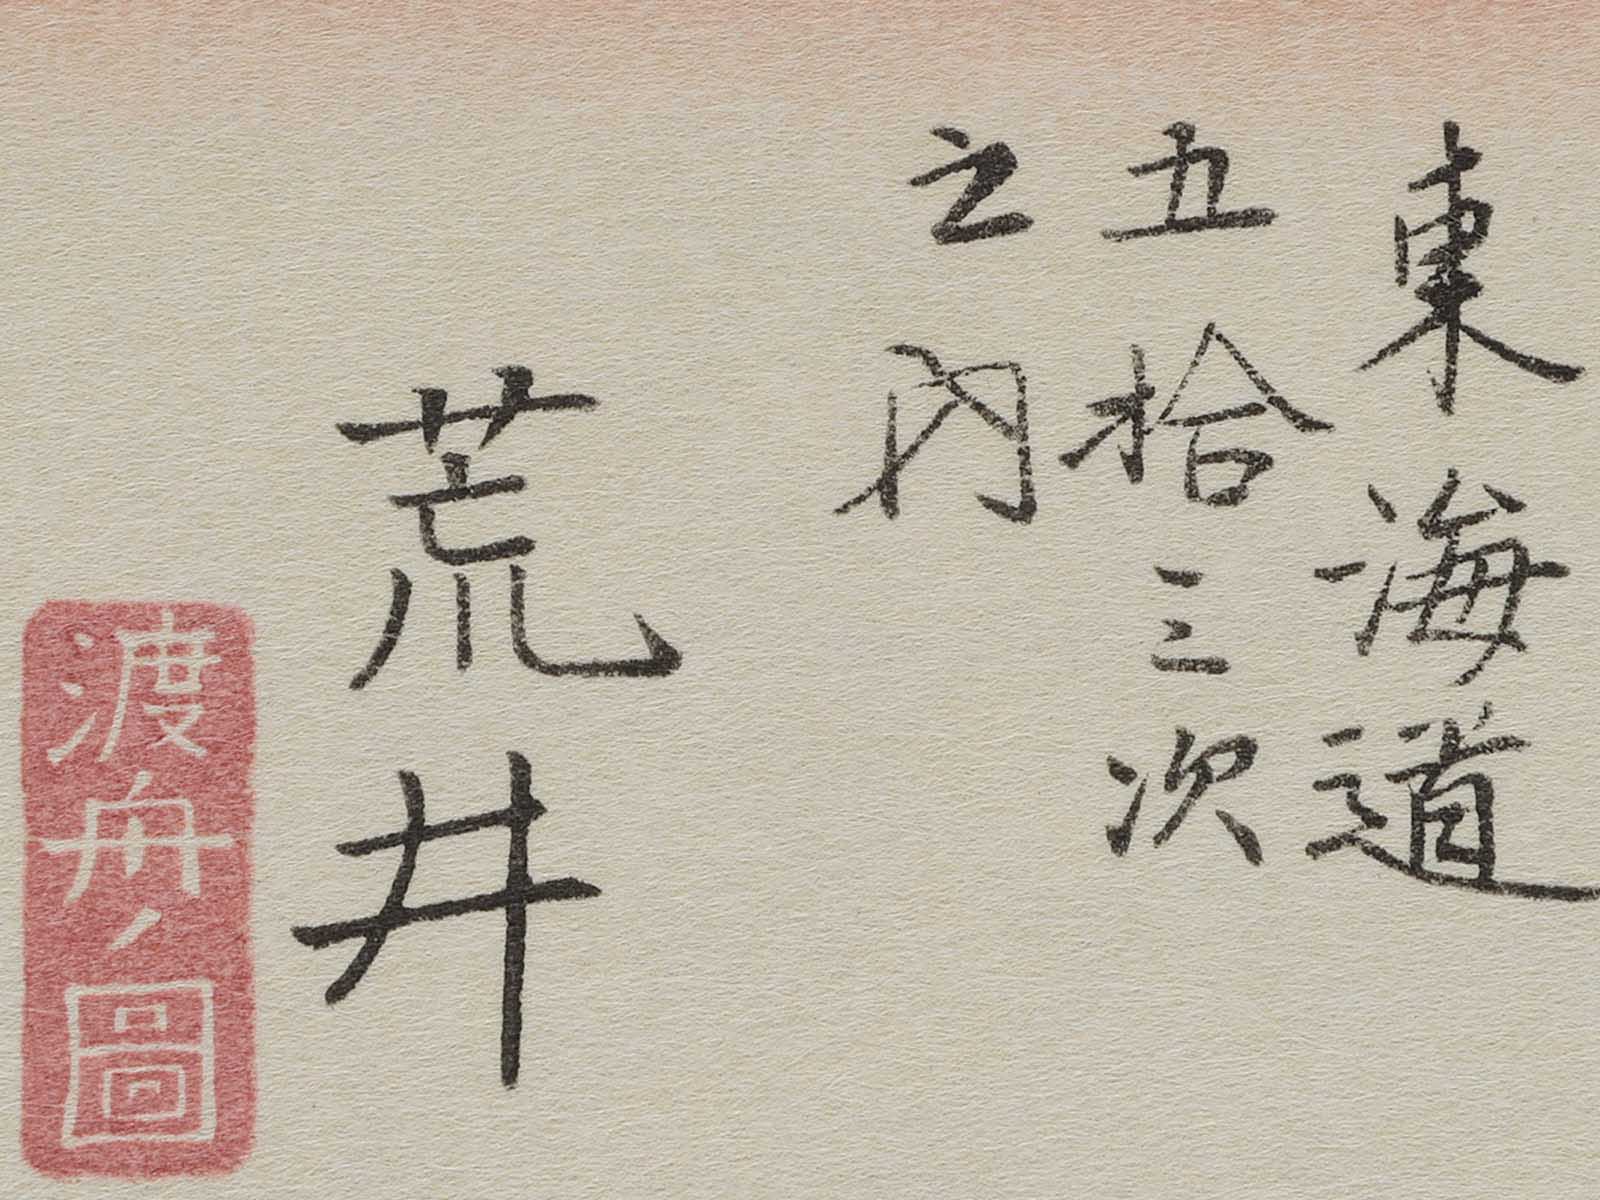 東海道
五拾三次
之内
荒井
渡舟ノ圖